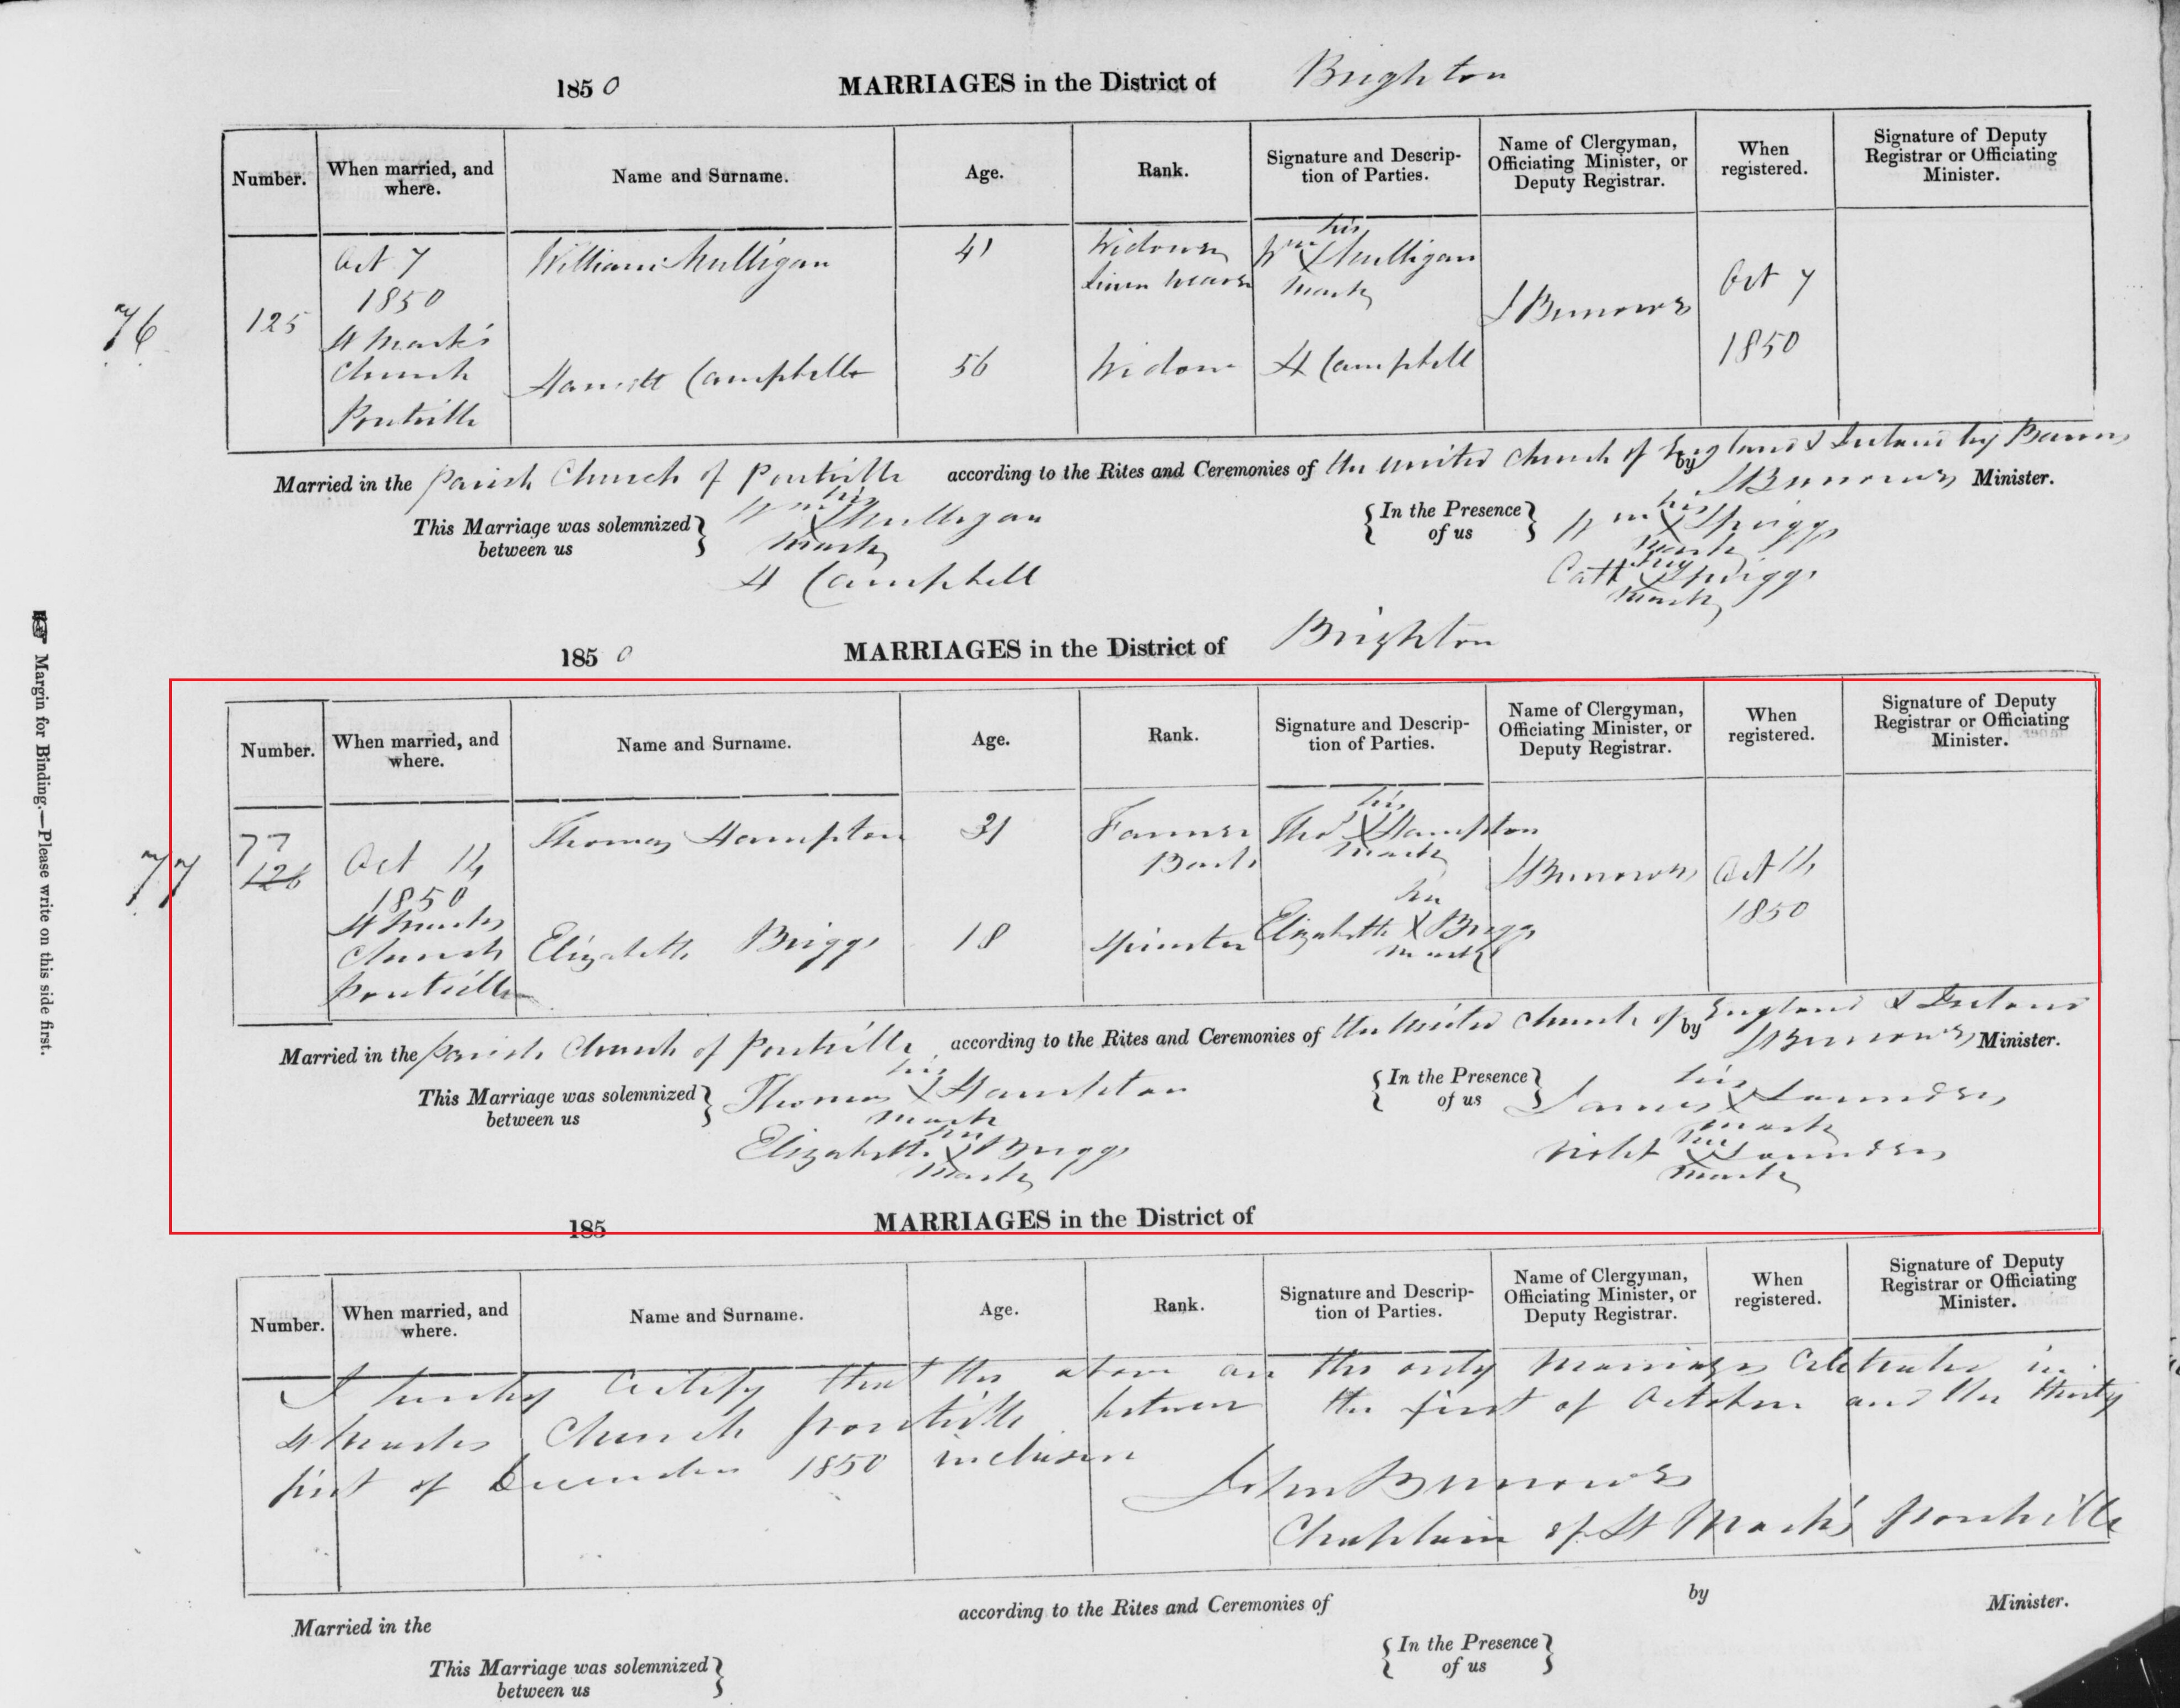 1850 MARRIAGES in the District of Brighton
Number. When married, and where. Name and Surname. Age. Rank. Signature and Descrip-tion of Parties. Name of Clergyman, Officiating Minister, or Deputy Registrar. When registered. Signature of Deputy Registrar or Officiating Minister.
76
125
Oct 7
1850
St Mark's
Church
Pontville
William Mulligan 41 Widower
Linen Weaver
Wm his X Mulligan
mark
Harriett Campbell 56 Widow H Campbell
J Burrowes
Oct 7
1850
Married in the Parish Church of Pontville according to the Rites and Ceremonies of the United Church of England & Ireland by Banns
by J Burrowes Minister.
This Marriage was solemnized between us
Wm his X Mulligan
mark
H Campbell
In the Presence of us
Wm his X Spriggs
mark
Cath her X Spriggs
mark
1850 MARRIAGES in the District of Brighton
Number. When married, and where. Name and Surname. Age. Rank. Signature and Descrip-tion of Parties. Name of Clergyman, Officiating Minister, or Deputy Registrar. When registered. Signature of Deputy Registrar or Officiating Minister.
77
77
126
Oct 14
1850
St Marks
Church
Pontville
Thomas Hampton 31 Farmer
Bach
Thos his X Hampton
mark
Elizabeth Briggs 18 Spinster
Elizabeth her X Briggs
mark
J Burrowes
Oct 14
1850
Married in the Parish Church of Pontville according to the Rites and Ceremonies of the United Church of England & Ireland
by J Burrowes Minister.
This Marriage was solemnized between us
Thomas his X Hampton
mark
Elizabeth her X Briggs
mark
In the Presence of us
James his X Saunders
mark
Violet her X Saunders
mark
185 MARRIAGES in the District of
Number. When married, and where. Name and Surname. Age. Rank. Signature and Descrip-tion of Parties. Name of Clergyman, Officiating Minister, or Deputy Registrar. When registered. Signature of Deputy Registrar or Officiating Minister.
I hereby Certify that the above are the only Marriages Celebrated in
St Marks Church Pontville between the first of October and the thirty
first of December 1850 inclusive
John Burrowes
Chaplain of St Mark's Pontville
Married in the according to the Rites and Ceremonies of by Minister.
This Marriage was solemnized between us
In the Presence of us
Margin for Binding.—Please write on this side first.